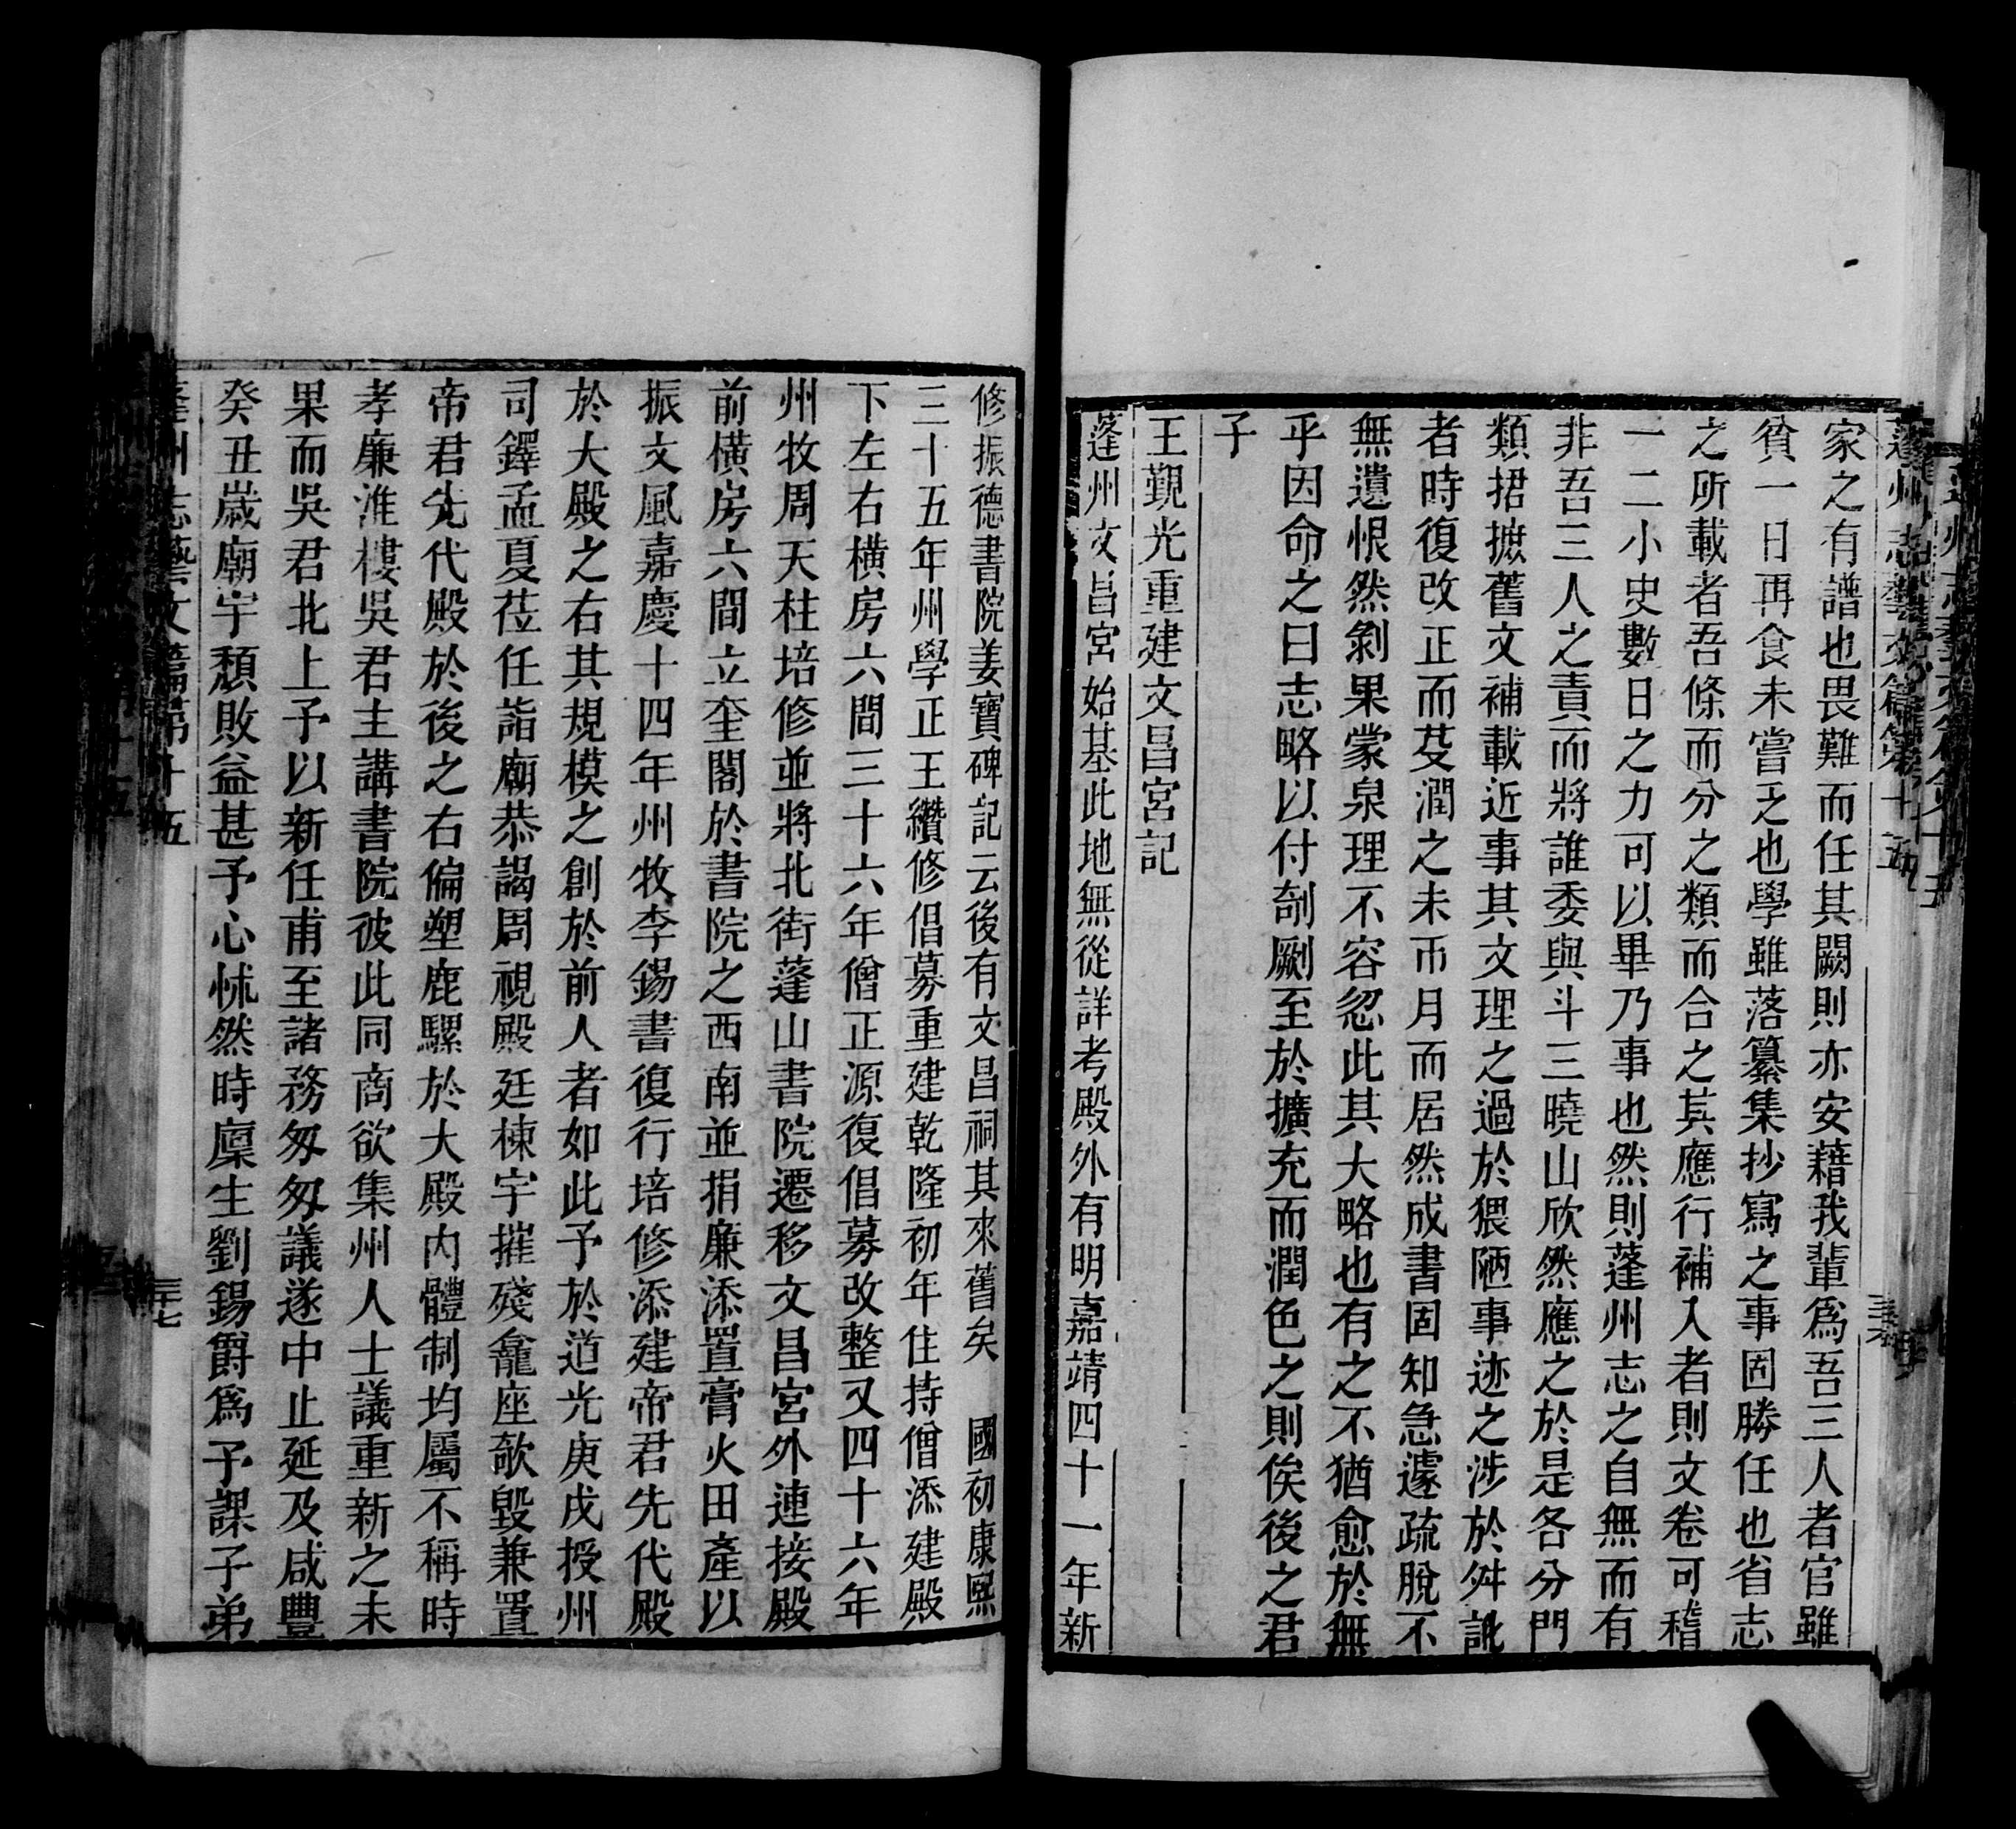 蓬州志藝文篇第十五
家之有譜也畏難而任其闕則亦安藉我輩爲吾三人者官雖
貧一日再食未嘗乏也學雖落纂集抄寫之事固勝任也省志
之所載者吾條而分之類而合之其應行補入者則文卷可稽
一二小史數日之力可以畢乃事也然則蓬州志之自無而有
非吾三人之責而將誰委與斗三曉山欣然應之於是各分門
類捃摭舊文補載近事其文理之過於猥陋事迹之涉於舛訛
者時復改正而芟潤之未帀月而居然成書固知急遽疏脫不
無遺恨然剝果蒙泉理不容忽此其大略也有之不猶愈於無
乎因命之曰志略以付剞劂至於擴充而潤色之則俟後之君
子
王覲光重建文昌宮記
蓬州文昌宮始基此地無從詳考殿外有明嘉靖四十一年新
修振德書院姜寶碑記云後有文昌祠其來舊矣 國初康熙
三十五年州學正王纘修倡募重建乾隆初年住持僧添建殿
下左右橫房六間三十六年僧正源復倡募改整又四十六年
州牧周天柱培修並將北街蓬山書院遷移文昌宮外連接殿
前橫房六間立奎閣於書院之西南並捐廉添置膏火田產以
振文風嘉慶十四年州牧李錫書復行培修添建帝君先代殿
於大殿之右其規模之創於前人者如此予於道光庚戌授州
司鐸孟夏莅任詣廟恭謁周視殿廷棟宇摧殘龕座欹毀兼置
帝君先代殿於後之右偏塑鹿騾於大殿內體制均屬不稱時
孝廉淮樓吳君主講書院彼此同商欲集州人士議重新之未
果而吳君北上予以新任甫至諸務匆匆議遂中止延及咸豐
癸丑歲廟宇頹敗益甚予心怵然時廩生劉錫爵爲予課子弟
蓬州志藝文篇第十五
三十七